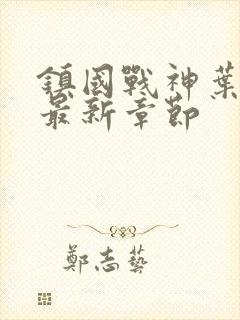 鎮國戰神葉
最新章節
鄭志藝